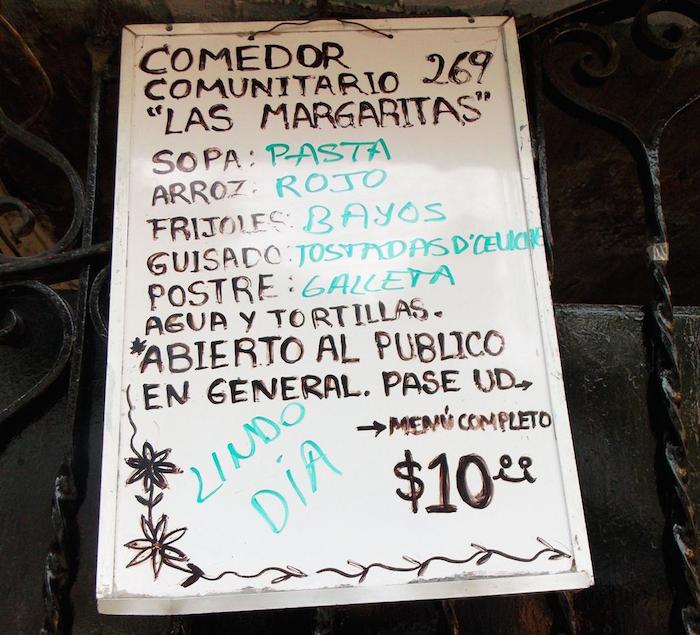 COMEDOR
COMUNITARIO 269
"LAS MARGARITAS"
SOPA: PASTA
ARROZ: ROJO
FRIJOLES: BAYOS
GUISADO: TOSTADAS D'CEVICHE
POSTRE: GALLETA
AGUA Y TORTILLAS.
*ABIERTO AL PUBLICO
EN GENERAL. PASE UD→
→MENÚ COMPLETO
$10
LINDO
DÍA